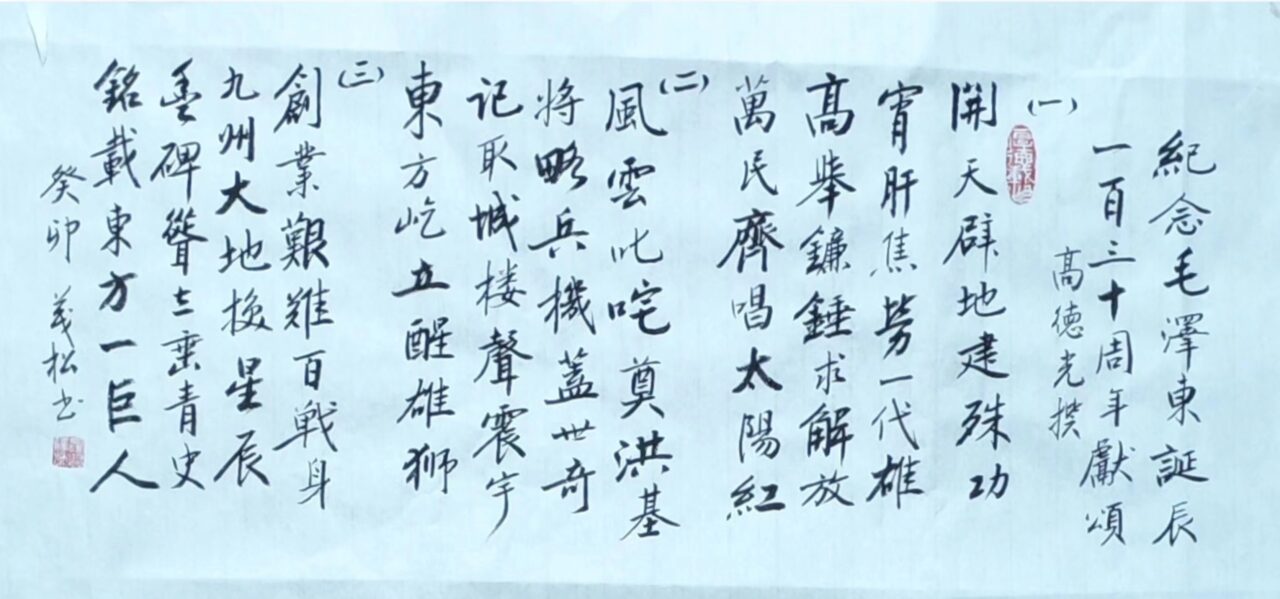 紀念毛澤東誕辰
一百三十周年獻頌
高德光撰
(一)
開天辟地建殊功
宵肝焦勞一代雄
高舉鐮錘求解放
萬民齊唱太陽紅
(二)
風雲叱咤奠洪基
将略兵機蓋世奇
记取城楼聲震宇
東方屹立醒雄獅
(三)
創業艱難百戰身
九州大地换星辰
碑聳立垂青史
銘載東方一巨人
癸卯 義松书